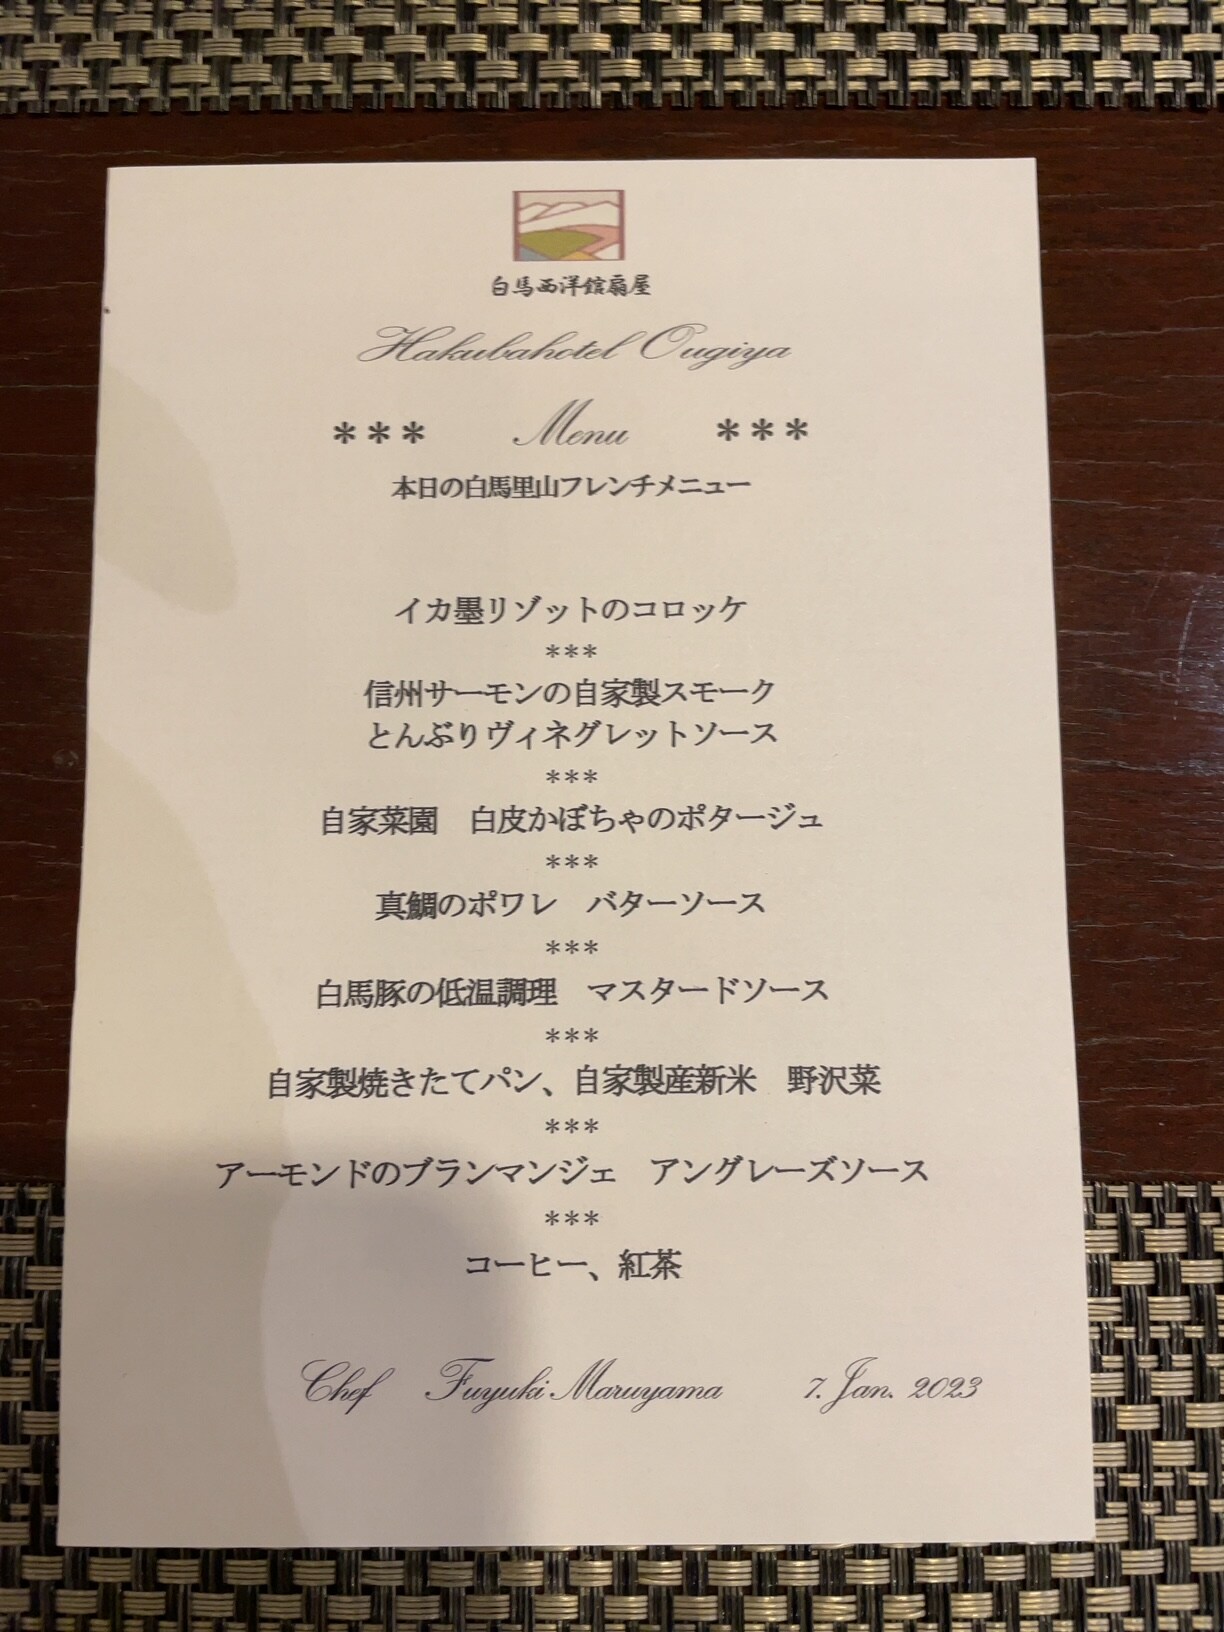 白馬西洋館扇屋
Hakubahotel Ougiya
*** Menu ***
本日の白馬里山フレンチメニュー
イカ墨リゾットのコロッケ
***
信州サーモンの自家製スモーク
とんぶりヴィネグレットソース
***
自家菜園　白皮かぼちゃのポタージュ
***
真鯛のポワレ　バターソース
***
白馬豚の低温調理　マスタードソース
***
自家製焼きたてパン、自家製産新米　野沢菜
***
アーモンドのブランマンジェ　アングレーズソース
***
コーヒー、紅茶
Chef Fuyuki Maruyama 7. Jan. 2023